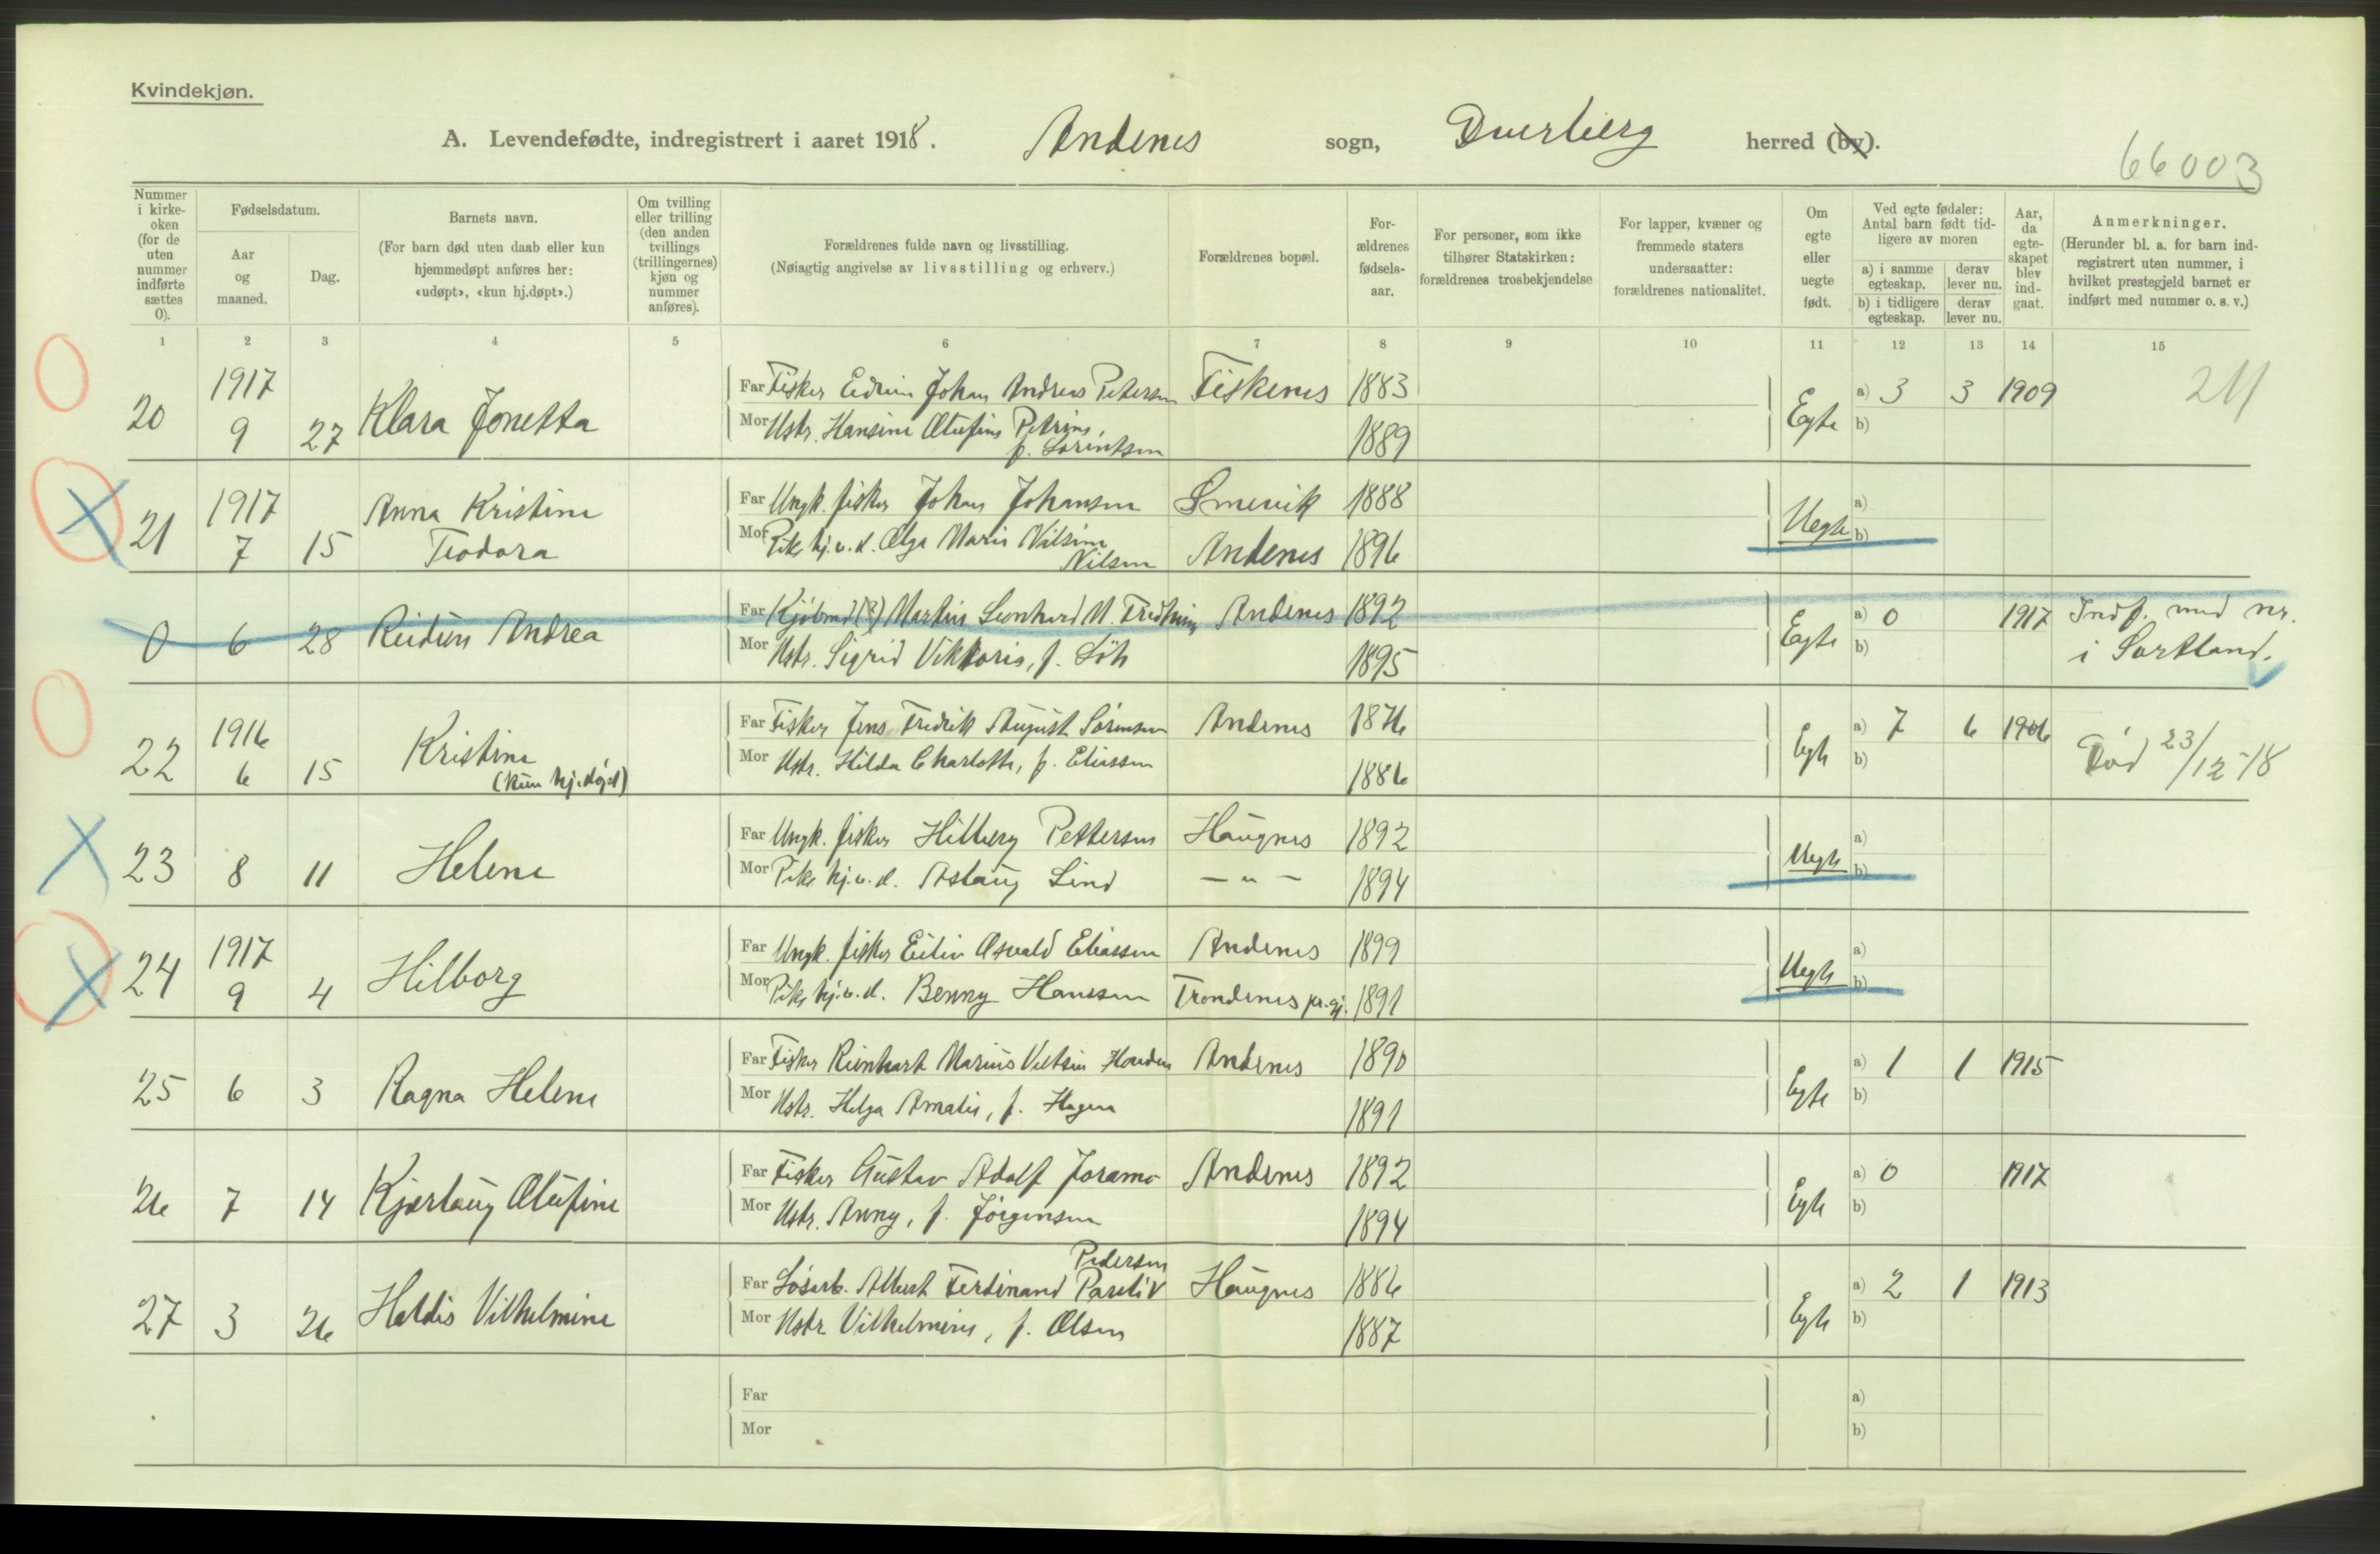 Kvindekjøn.
A. Levendefødte, indregistrert i aaret 1918. Andenes sogn, Dverberg herred (by).
66003
Nummer i kirke-oken (for de uten nummer indførte sættes 0).
Fødselsdatum.
Aar og maaned.
Dag.
Barnets navn.
(For barn død uten daab eller kun hjemmedøpt anføres her: «udøpt», «kun hj.døpt».)
Om tvilling eller trilling (den anden tvillings (trillingernes) kjøn og nummer anføres).
Forældrenes fulde navn og livsstilling.
(Nøiagtig angivelse av livsstilling og erhverv.)
Forældrenes bopæl.
For-ældrenes fødsels-aar.
For personer, som ikke tilhører Statskirken: forældrenes trosbekjendelse
For lapper, kvæner og fremmede staters undersaatter: forældrenes nationalitet.
Om egte eller uegte født.
Ved egte fødsler: Antal barn født tid-ligere av moren
a) i samme egteskap.
derav lever nu.
b) i tidligere egteskap.
derav lever nu.
Aar, da egte-skapet blev ind-gaat.
Anmerkninger.
(Herunder bl. a. for barn ind-registrert uten nummer, i hvilket prestegjeld barnet er indført med nummer o. s. v.)
1 2 3 4 5 6 7 8 9 10 11 12 13 14 15
20 1917 9 27 Klara Jonetta
Far Fisker Johan Andreas Petersen Fiskenes 1883
Mor Hstr. Hansine Olufine Petrine, f. Lorentsen 1889
Egte a) 3 3 1909
b)
21 1917 7 15 Anna Kristine
Teodora
Far Ungk. fisker Johan Johansen Smevik 1888
Mor Pike hj.v.d. Olga Marie Nilsine
Nilsen Andenes 1896
Uegte a)
b)
0 6 28 Reidun Andrea
Far Kjøbmd (?) Martin Leonhard M. Andenes 1892
Mor Hstr. Sigrid Viktoria, f. 1895
Egte a) 0 1917 Indf. med nr.
b) i Sortland.
22 1916 6 15 Kristine
(kun hj.døpt)
Far Fisker Jens Fredrik August Sørensen Andenes 1876
Mor Hstr. Hilda Charlotte, f. Eliassen 1886
Egte a) 7 6 1906
b)
Død 23/12-18
23 8 11 Helene
Far Ungk. fisker Hilberg Pettersen Haugnes 1892
Mor Pike hj.v.d. Aslaug Lind — " — 1894
Uegte a)
b)
24 1917 9 4 Hilborg
Far Ungk. fisker Eiliv Osvald Eliassen Andenes 1899
Mor Pike hj.v.d. Benny Hanssen Trondenes pr.gj. 1891
Uegte a)
b)
25 6 3 Ragna Helene
Far Fisker Reinhart Marius Andenes 1890
Mor Hstr. Helga Amalie, f. Hagen 1891
Egte a) 1 1 1915
b)
26 7 14 Kjærlaug Olufine
Far Fisker Gustav Adolf Joramo Andenes 1892
Mor Hstr. Anny, f. Jørgensen 1894
Egte a) 0 1917
b)
27 3 26 Haldis Vilhelmine
Pedersen
Far Løsarb. Albert Ferdinand Haugnes 1886
Mor Hstr Vilhelmine, f. Olsen 1887
Egte a) 2 1 1913
b)
Far
Mor
a)
b)